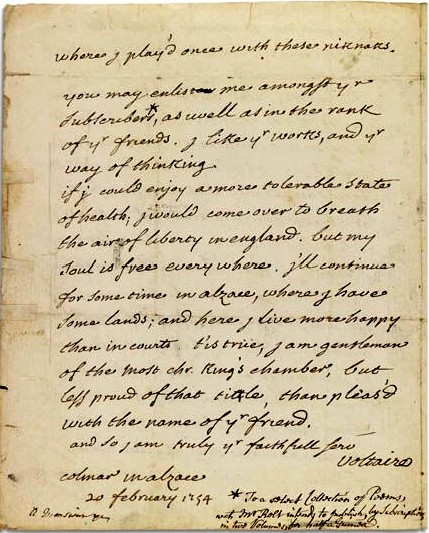 where j play'd once with these niknaks.
you may enlist me amongst yr
Subscribers*, as well as in the rank
of yr friends. j like yr works, and yr
way of thinking
if j could enjoy a more tolerable state
of health, j would come over to breath
the air of liberty in england. but my
soul is free every where. j'll continue
for some time in alzace, where j have
some lands; and here j live more happy
than in courts t'is true, j am gentleman
of the most chr. King's chamber, but
less proud of that title, than pleas'd
with the name of yr friend.
and so j am truly yr faithfull serv
Voltaire
colmar in alzace
20 february 1754
* To a select Collection of Poems,
wch Mr Rolt intends to publish, by Subscription
in two Volumes, for half a Guinea.